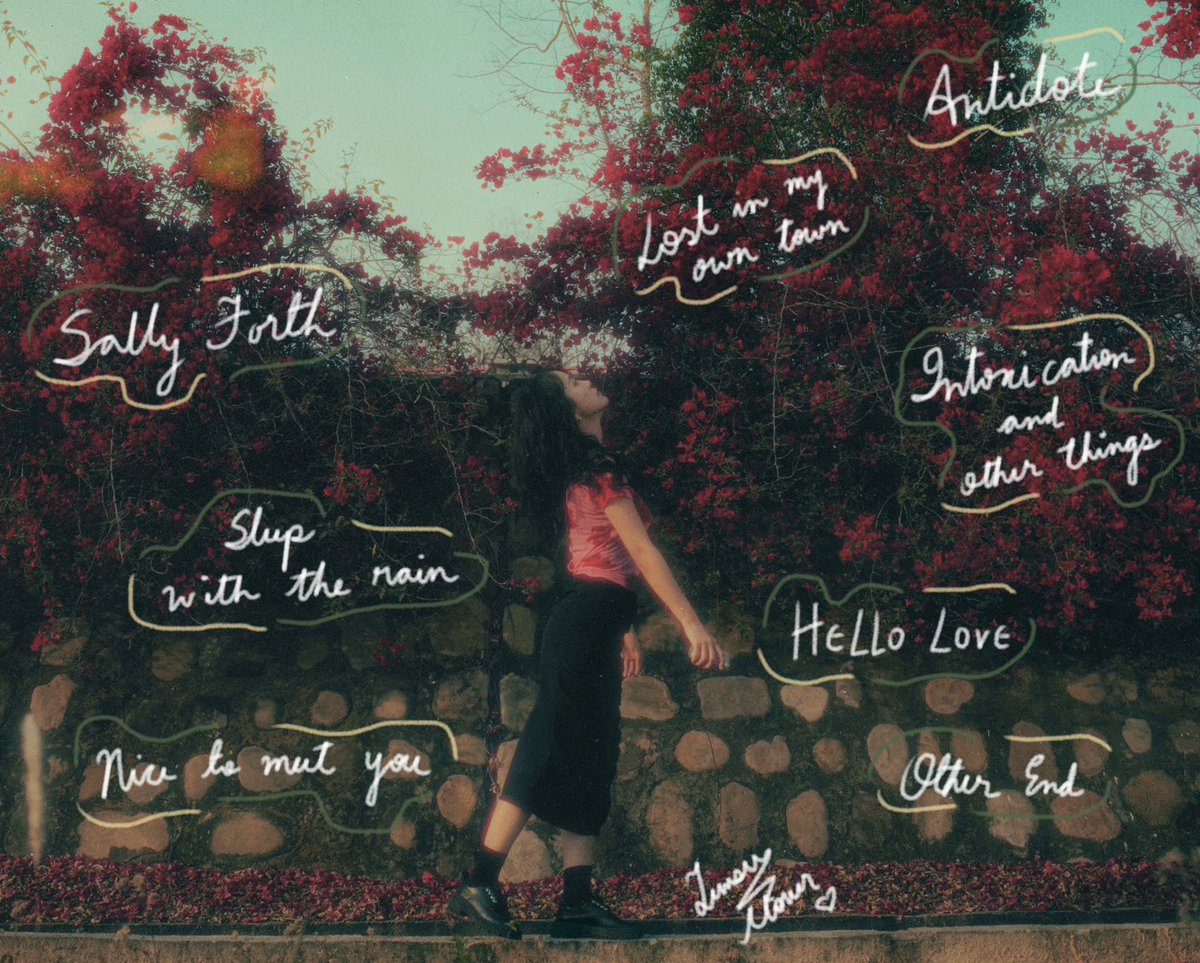 Antidote
Lost in my
own town
Sally Forth
Intoxication
and
other things
Sleep
with the rain
HELLO LOVE
Nice to meet you
Other End